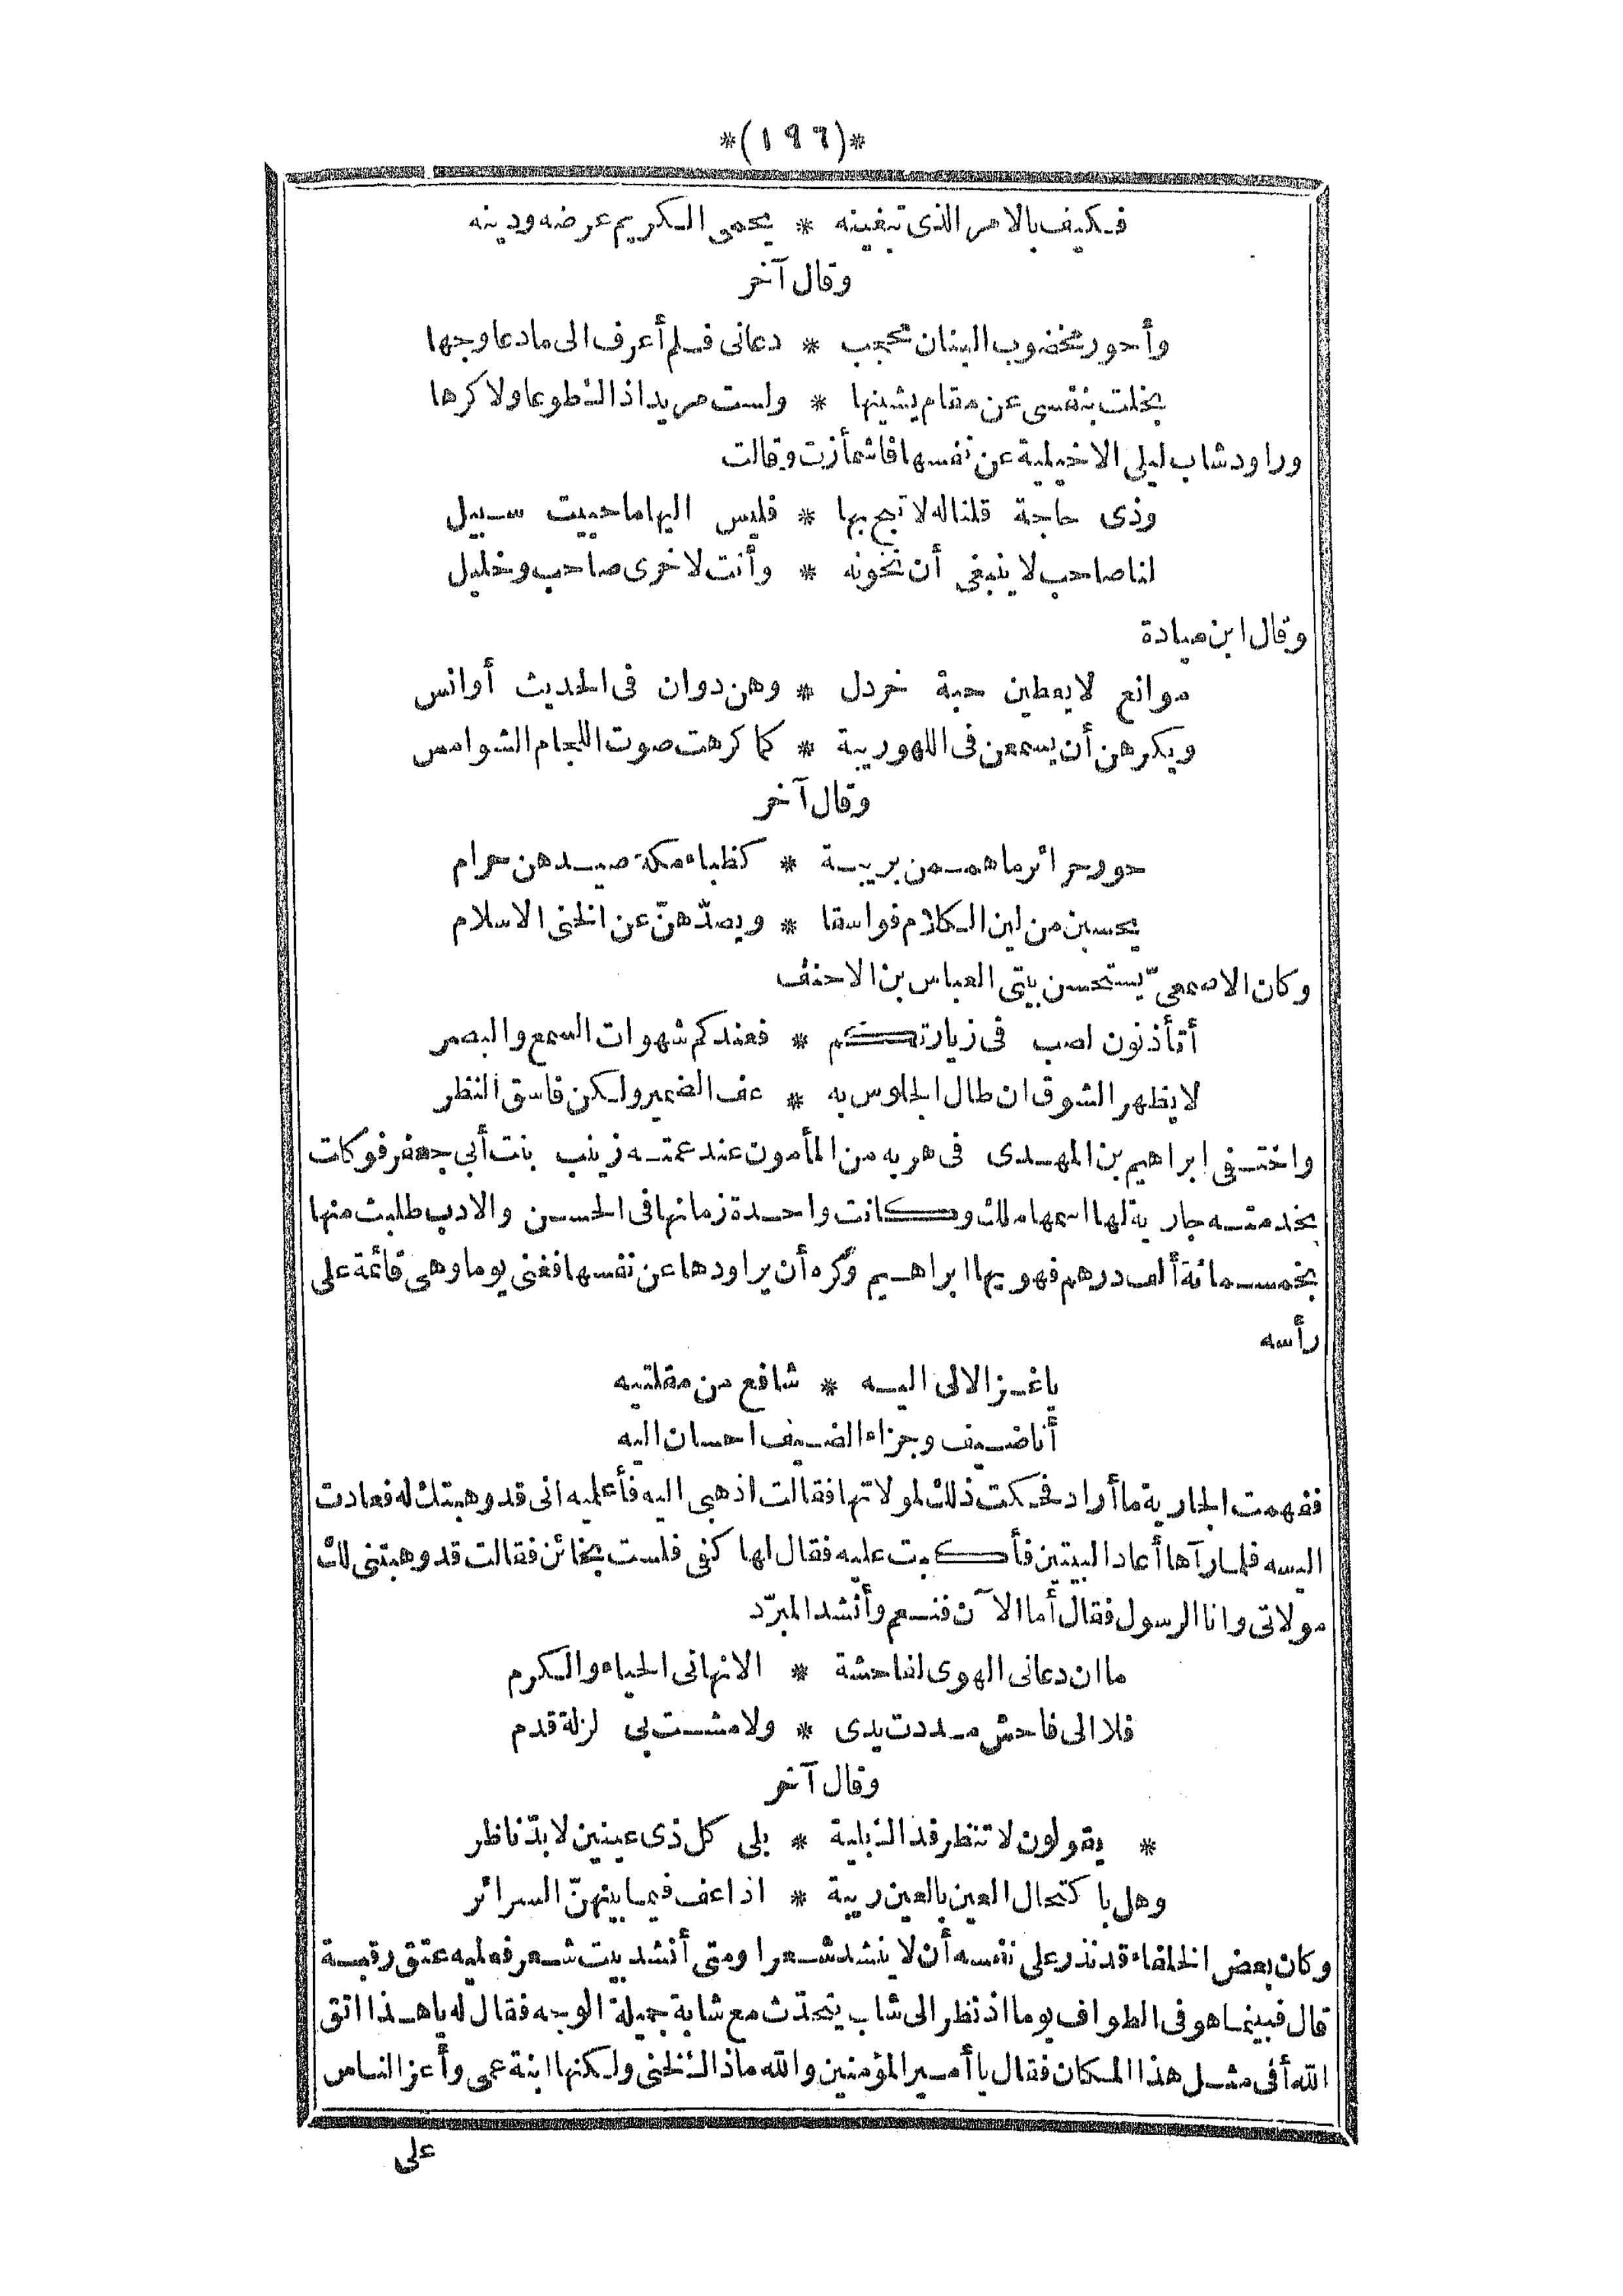 *(١٩٦)*
فكيف بالامر الذى تبغينه * يحمى الكريم عرضه ودينه
وقال آخر
وأحور مخضوب البنان محجب * دعانى فلم أعرف الى مادعا وجها
بخلت بنفسى عن مقام يشينها * ولست مريدا ذاك طوعا ولا كرها
وراود شاب ليلى الاخيلية عن نفسها فاشمأزت وقالت
وذى حاجة قلنا له لا تبح بها * فليس اليها ماحييت سبيل
لنا صاحب لا ينبغى أن نخونه * وأنت لاخرى صاحب وخليل
وقال ابن ميادة
موانع لا يعطين حبة خردل * وهن دوان فى الحديث أوانس
ويكرهن أن يسمعن فى اللهو ريبة * كما كرهت صوت اللجام الشوامس
وقال آخر
حور حرائر ما هممن بريبة * كظباء مكة صيدهن حرام
يحسبن من لين الكلام فواسقا * ويصدّهنّ عن الخنى الاسلام
وكان الاصمعىّ يستحسن بيتى العباس بن الاحنف
أتأذنون لصب فى زيارتكم * فعندكم شهوات السمع والبصر
لا يظهر الشوق ان طال الجلوس به * عف الضمير ولكن فاسق النظر
واختفى ابراهيم بن المهدى فى هربه من المأمون عند عمته زينب بنت أبى جعفر فوكات
بخدمته جارية لها اسمها ملك وكانت واحدة زمانها فى الحسن والادب طلبت منها
بخمسمائة ألف درهم فهويها ابراهيم وكره أن يراودها عن نفسها فغنى يوما وهى قائمة على
رأسه
ياغزالا لى اليه * شافع من مقلتيه
أنا ضيف وجزاء الضيف احسان اليه
ففهمت الجارية ما أراد فحكت ذلك لمولاتها فقالت اذهبى اليه فأعلميه انى قد وهبتك له فعادت
اليه فلما رآها أعاد البيتين فأكبت عليه فقال لها كفى فلست بخائن فقالت قد وهبتنى لك
مولاتى وانا الرسول فقال أما الآن فنعم وأنشد المبرّد
ما ان دعانى الهوى لفاحشة * الا نهانى الحياء والكرم
فلا الى فاحش مددت يدى * ولا مشت بى لزلة قدم
وقال آخر
* يقولون لا تنظر فذاك بلية * بلى كل ذى عينين لا بدّ ناظر
وهل با كتحال العين بالعين ريبة * اذا عف فيما بينهنّ السرائر
وكان بعض الخلفاء قد نذر على نفسه أن لا ينشد شعرا ومتى أنشد بيت شعر فعليه عتق رقبة
قال فبينما هو فى الطواف يوما اذ نظر الى شاب يتحدّث مع شابة جميلة الوجه فقال له ياهذا اتق
الله أفى مثل هذا المكان فقال يا أمير المؤمنين والله ماذاك لخنى ولكنها ابنة عمى وأعز الناس
على